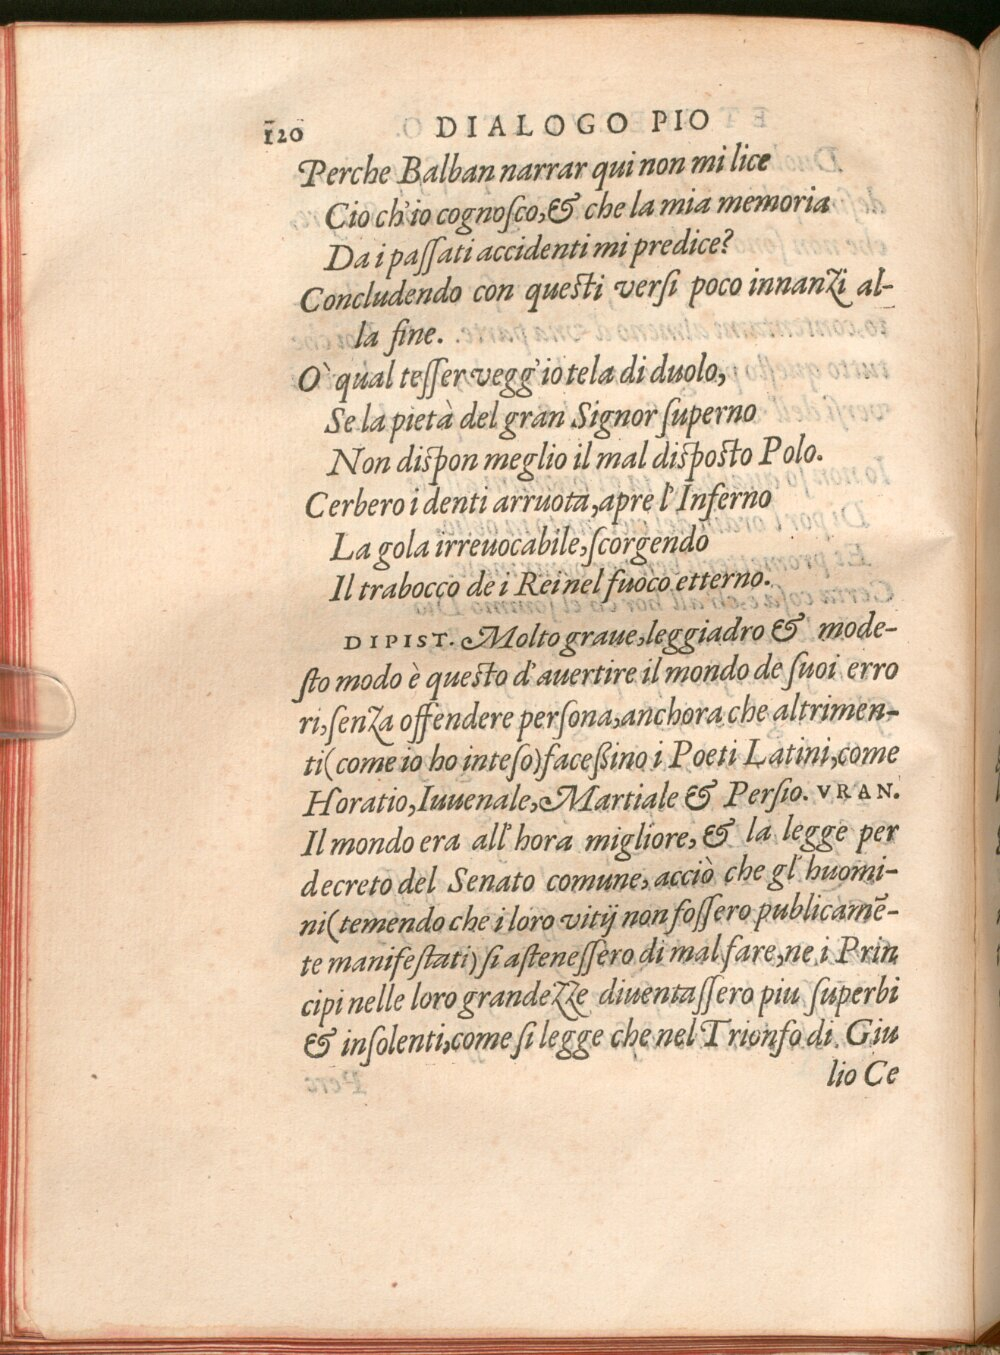 120 DIALOGO PIO
Perche Balban narrar qui non mi lice
Cio ch'io cognoſco,& che la mia memoria
Da i paſſati accidenti mi predice?
Concludendo con queſti verſi poco innanzi al-
la fine.
O` qual teſſer vegg'io tela di duolo,
Se la pietà del gran Signor ſuperno
Non diſpon meglio il mal diſpoſto Polo.
Cerbero i denti arruota,apre l'Inferno
La gola irreuocabile,ſcorgendo
Il trabocco de i Rei nel fuoco etterno.
DIPIST. Molto graue,leggiadro & mode-
ſto modo è queſto d'auertire il mondo de ſuoi erro
ri,ſenza offendere perſona,anchora che altrimen-
ti(come io ho inteſo)faceßino i Poeti Latini,come
Horatio,Iuuenale,Martiale & Perſio. VRAN.
Il mondo era all'hora migliore,& la legge per
decreto del Senato comune,acciò che gl'huomi-
ni(temendo che i loro vitij non foſſero publicamẽ-
te manifeſtati)ſi aſteneſſero di mal fare,ne i Prin
cipi nelle loro grandezze diuentaſſero piu ſuperbi
& inſolenti,come ſi legge che nel Trionfo di Giu
lio Ce